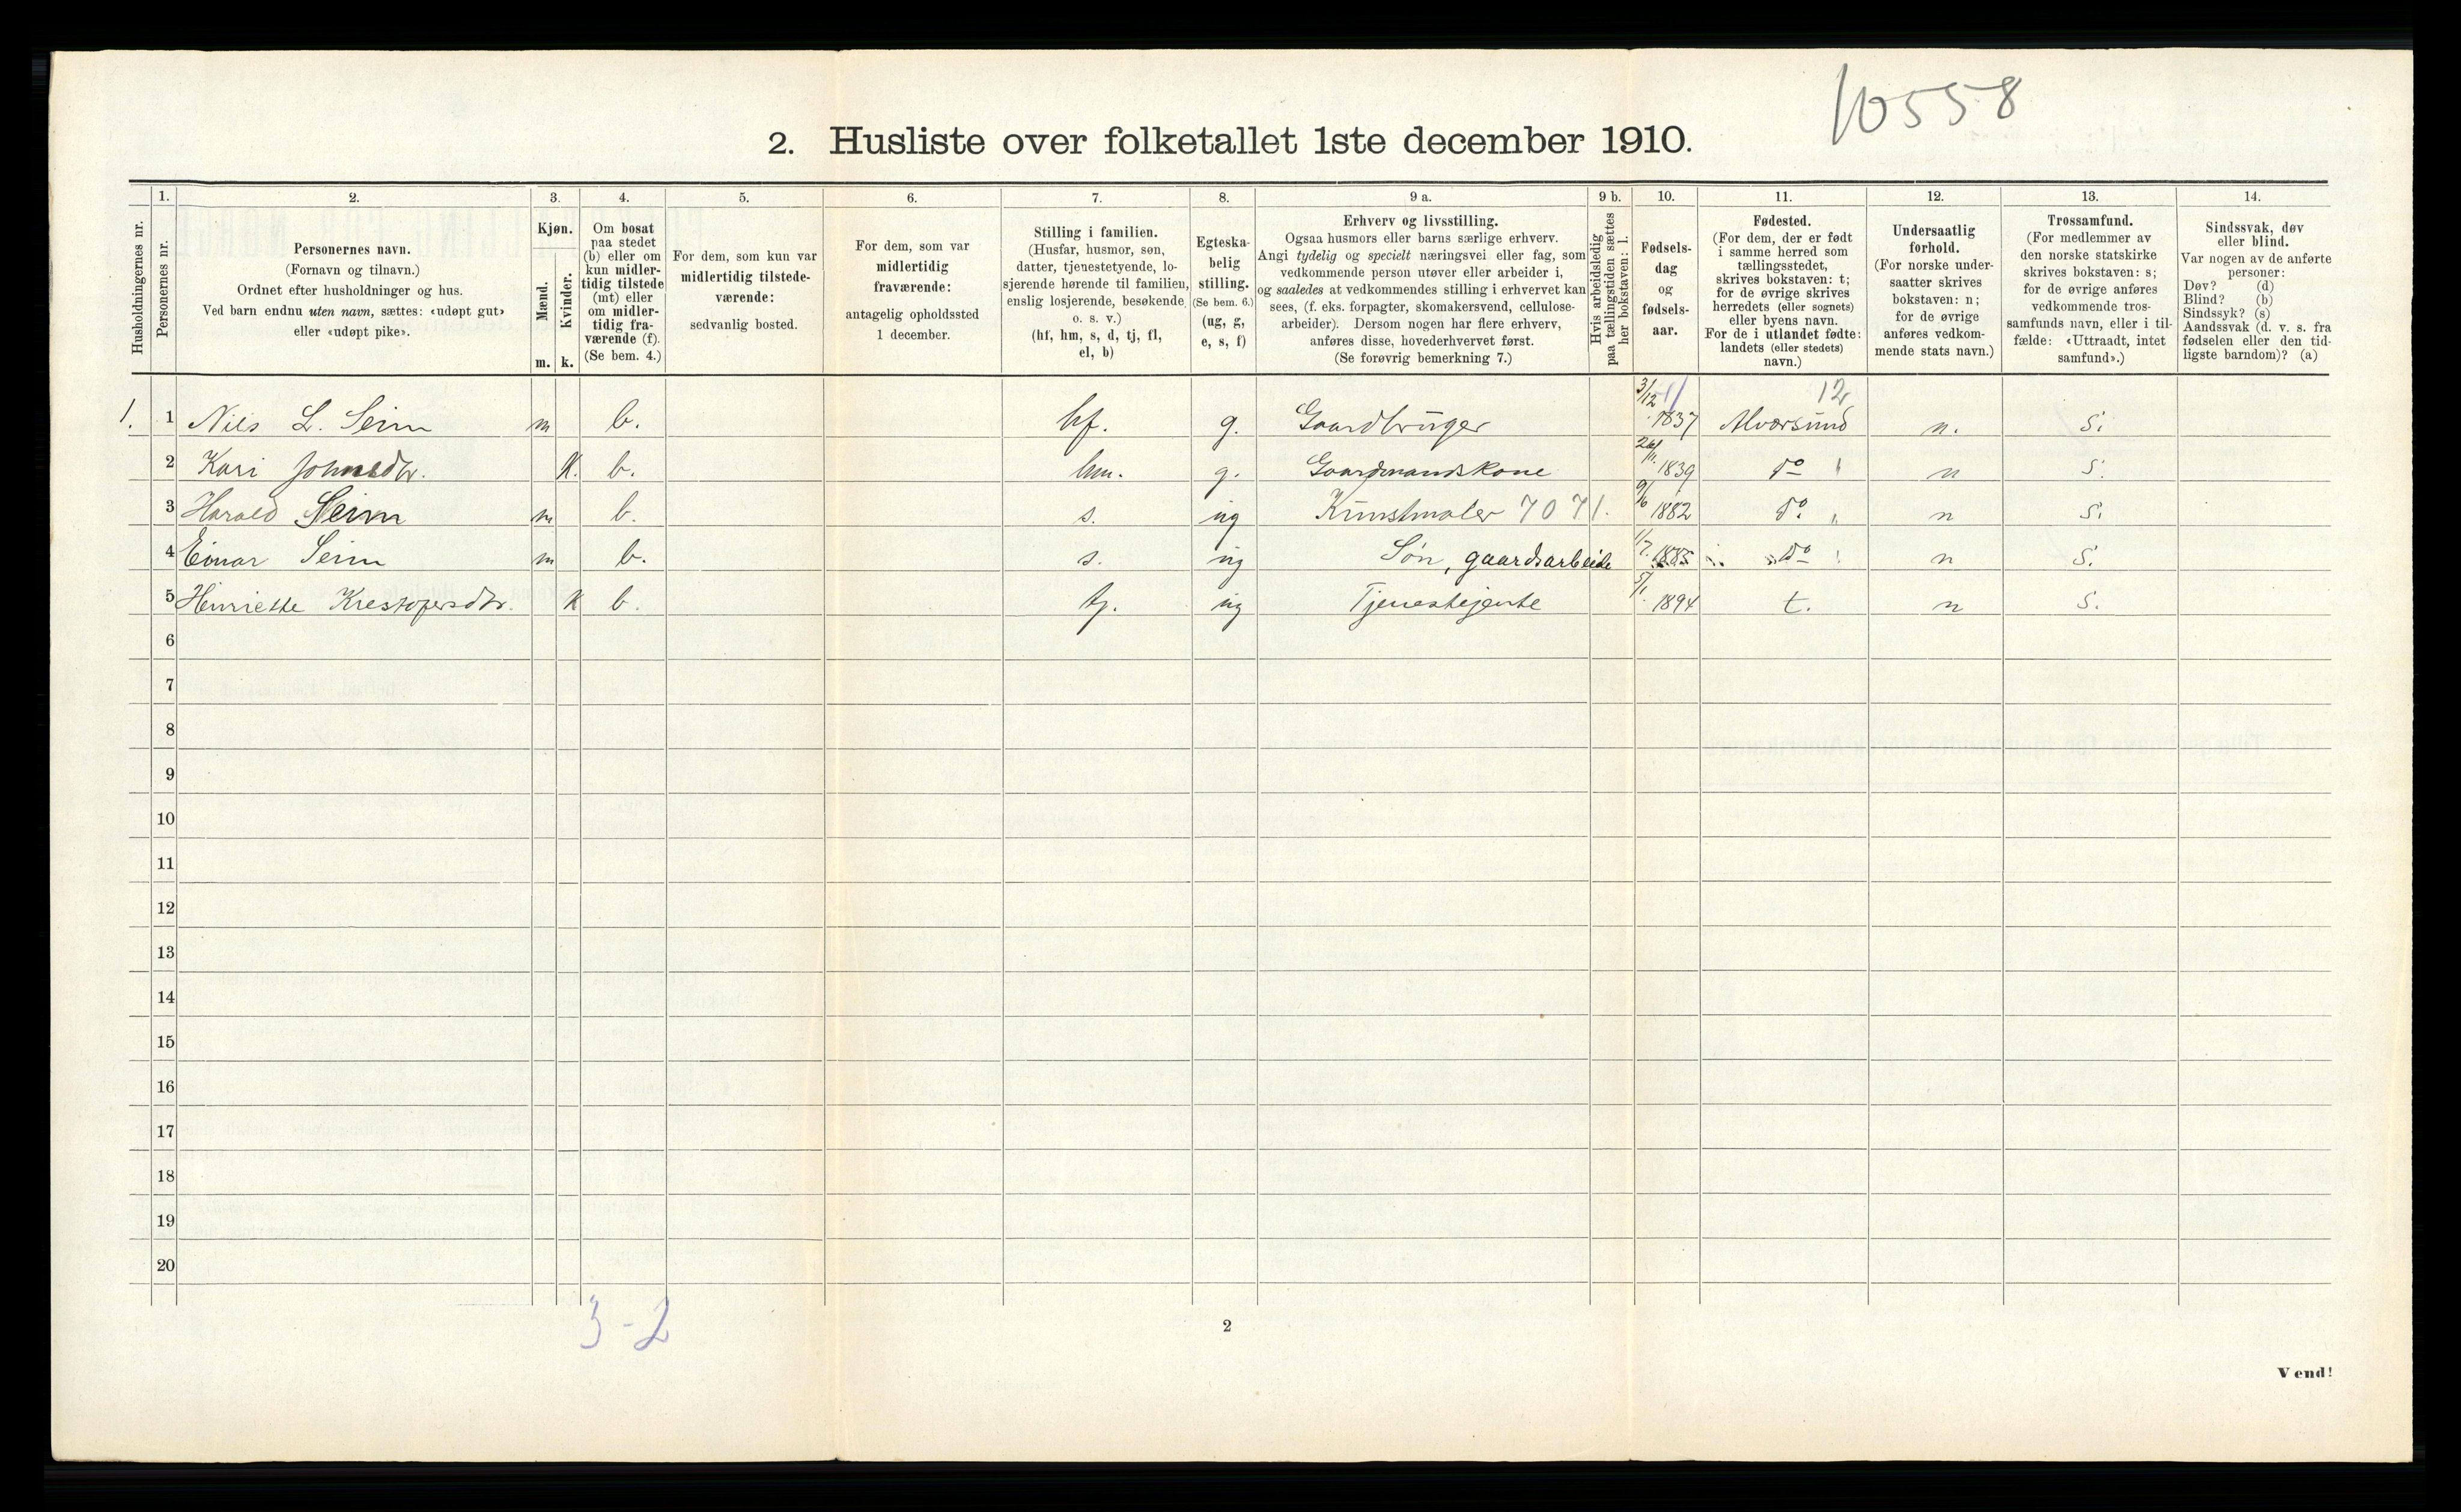 10558
2. Husliste over folketallet 1ste december 1910.
Husholdningernes nr.
1.
Personernes nr.
2.
Personernes navn.
(Fornavn og tilnavn.)
Ordnet efter husholdninger og hus.
Ved barn endnu uten navn, sættes: «udøpt gut»
eller «udøpt pike».
3.
Kjøn.
Mænd.
m.
Kvinder.
k.
4.
Om bosat
paa stedet
(b) eller om
kun midler-
tidig tilstede
(mt) eller
om midler-
tidig fra-
værende (f).
(Se bem. 4.)
5.
For dem, som kun var
midlertidig tilstede-
værende:
sedvanlig bosted.
6.
For dem, som var
midlertidig
fraværende:
antagelig opholdssted
1 december.
7.
Stilling i familien.
(Husfar, husmor, søn,
datter, tjenestetyende, lo-
sjerende hørende til familien,
enslig losjerende, besøkende
o. s. v.)
(hf, hm, s, d, tj, fl,
el, b)
8.
Egteska-
belig
stilling.
(Se bem. 6.)
(ug, g,
e, s, f)
9 a.
Erhverv og livsstilling.
Ogsaa husmors eller barns særlige erhverv.
Angi tydelig og specielt næringsvei eller fag, som
vedkommende person utøver eller arbeider i,
og saaledes at vedkommendes stilling i erhvervet kan
sees, (f. eks. forpagter, skomakersvend, cellulose-
arbeider). Dersom nogen har flere erhverv,
anføres disse, hovederhvervet først.
(Se forøvrig bemerkning 7.)
9 b.
Hvis arbeidsledig
paa tællingstiden sættes
her bokstaven: l.
10.
Fødsels-
dag
og
fødsels-
aar.
11.
Fødested.
(For dem, der er født
i samme herred som
tællingsstedet,
skrives bokstaven: t;
for de øvrige skrives
herredets (eller sognets)
eller byens navn.
For de i utlandet fødte:
landets (eller stedets)
navn.)
12.
Undersaatlig
forhold.
(For norske under-
saatter skrives
bokstaven: n;
for de øvrige
anføres vedkom-
mende stats navn.)
13.
Trossamfund.
(For medlemmer av
den norske statskirke
skrives bokstaven: s;
for de øvrige anføres
vedkommende tros-
samfunds navn, eller i til-
fælde: «Uttraadt, intet
samfund».)
14.
Sindssvak, døv
eller blind.
Var nogen av de anførte
personer:
Døv? (d)
Blind? (b)
Sindssyk? (s)
Aandssvak (d. v. s. fra
fødselen eller den tid-
ligste barndom)? (a)
12
1. 1 Nils L. Seim m b. hf. g. Gaardbruger 3/12 1837 Alversund n. s.
2 Kari Johnsdtr. K. b. hm. g. Gaardmandskone 26/11. 1839 do n s.
3 Harald Seim m b. s. ug Kunstmaler 7071. 9/6 1882 do. n s.
4 Einar Seim m b. s. ug Søn, gaardsarbeide 1/7. 1885 do n s.
5 Henriette Krestofersdtr. K b. tj. ug Tjenestejente 5/1. 1894 t. n s.
6
7
8
9
10
11
12
13
14
15
16
17
18
19
20
3-2
2
Vend!